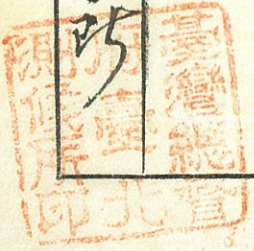 所
臺灣總督
府臺北
測候所印